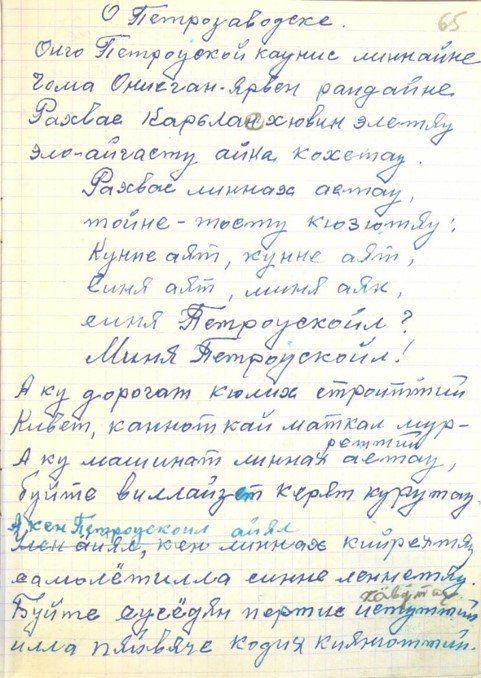 О Петрозаводске.
65
Онго Петроускойкаунис линнайне
Чома Онисган-Ярвен рандайне
Рахвас Карьлас хювин элетяу
эло-айгасту айна кохетау.
Рахвас линнах астау,
тойне-тосту кюзютяу:
Кунне аят, кунне аят,
Синя аят, миня аян,
синя Петроускойл?
Миня Петроускойл!
А ку дорогат кюлих строиттий
Кивет, каннот кай маткал мур-
реттий
А ку машинат линнах астау,
буйте виллайзет керят курутау.
А кен Петроускоил айял
айял, кен линнах кийрехтяу
самолётилла синне леннетяу.
Буйте сусёдян пертис
илла пяйвяче кодих киянноттий.